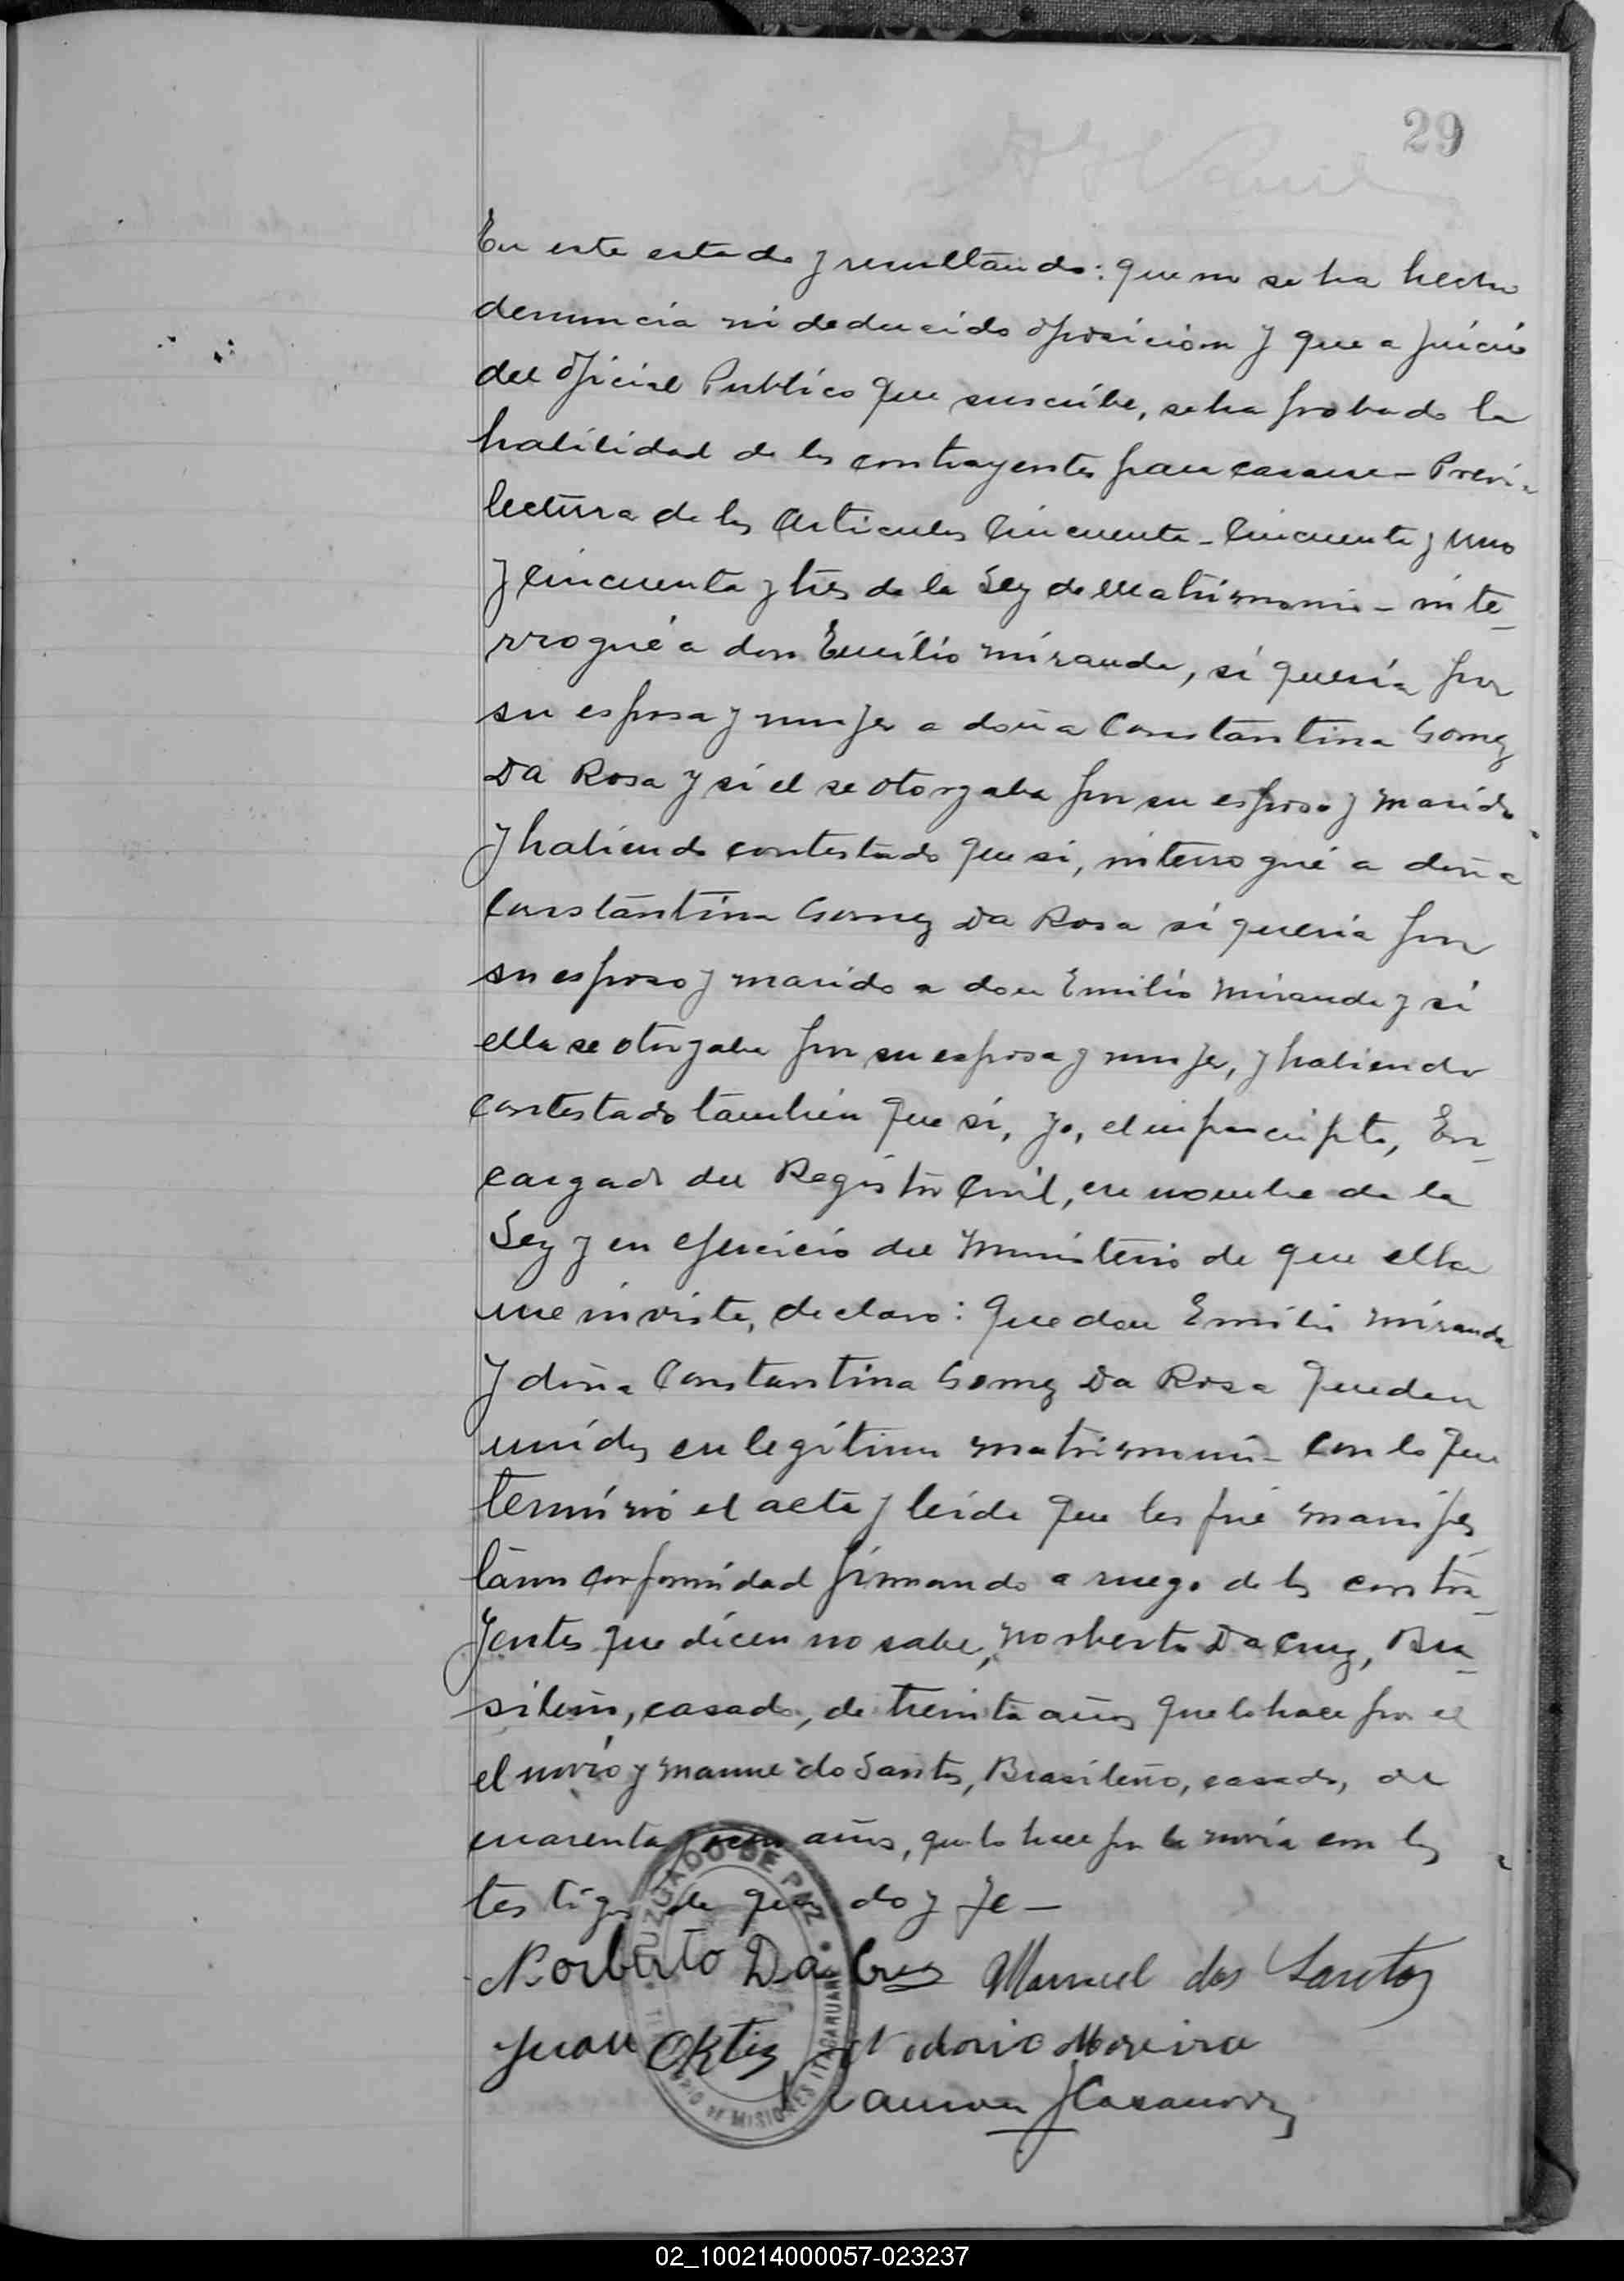 29
En este estado y resultando: que no se ha hecho
denuncia ni deducido oposición y que a juicio
del Oficial Publico que suscribe, se ha probado la
habilidad de los contrayentes para casarse - Previa
lectura de los Articulos Cincuenta - Cincuenta y uno
y cincuenta y tres de la Ley de Matrimonio - inte-
rrogué a don Emilio Miranda, si quería por
su esposa y mujer a doña Constantina Gomez
Da Rosa y si el se otorgaba por su esposo y marido
y habiendo contestado que si, interrogué a doña
Constantina Gomez Da Rosa si queria por
su esposo y marido a don Emilio Miranda y si
ella se otorgaba por su esposa y mujer, y habiendo
contestado también que si, yo, el infrascripto, En-
cargado del Registro Civil, en nombre de la
Ley y en ejercicio del Ministerio de que ella
me inviste, declaro: que don Emilio Miranda
y doña Constantina Gomez Da Rosa quedan
unidos en legítimo matrimonio - con lo que
terminó el acta y leida que les fué manifes
taron conformidad firmando a ruego de los contra-
yentes que dicen no saber, Norberto Da Cruz, Bra-
sileño, casado, de treinta años que lo hace por el
el novio y Manuel do Santos, Brasileño, casado, de
cuarenta y años, que lo hace por la novia con los
testigos de que doy fe -
Norberto Da Cruz Manuel dos Santos
Juan Ortiz Moreira
Ramon J Casanova
JUZGADO DE PAZ
TERRITORIO DE MISIONES ITACARUARE
02_100214000057-023237